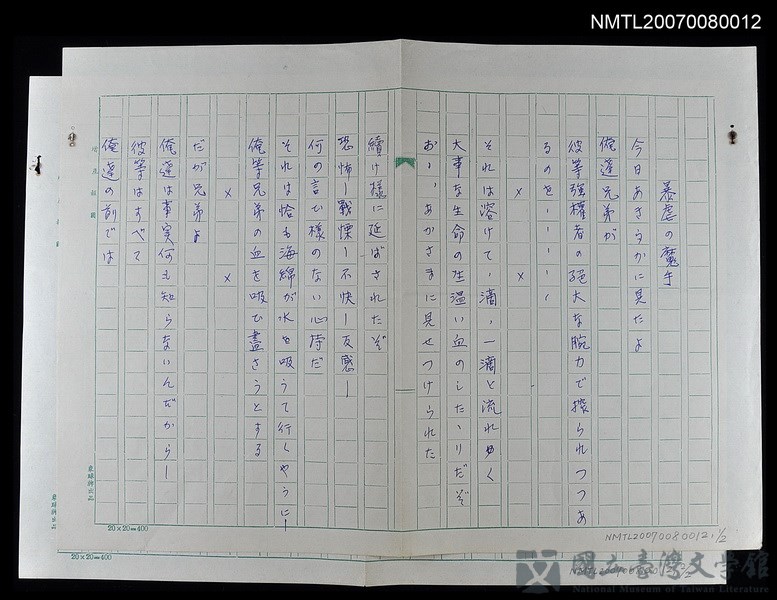 NMTL20070080012
暴虐の魔手
今日あきらかに見たよ
俺達兄弟が
彼等強権者の絶大な腕力で搾られつつあ
るのを、、、、
× ×
それは溶けて、滴、一滴と流れゆく
大事な生命の生温い血のしたゝりだぞ
おゝ、あかさまに見せつけられた
続け様に延ばされたぞ
恐怖ー戦慄ー不快ー反感ー
何の言ひ様のない心持だ
それは恰も海綿が水を吸うて行くやうにー
俺等兄弟の血を吸ひ盡さうとする
× ×
だが兄弟よ
俺達は事実何も知らないんだからー
彼等はすべて
俺達の前では
20×20=400
20×20=400
NMTL20070080012, 1/2
國立臺灣文學館
National Museum of Taiwan Literature